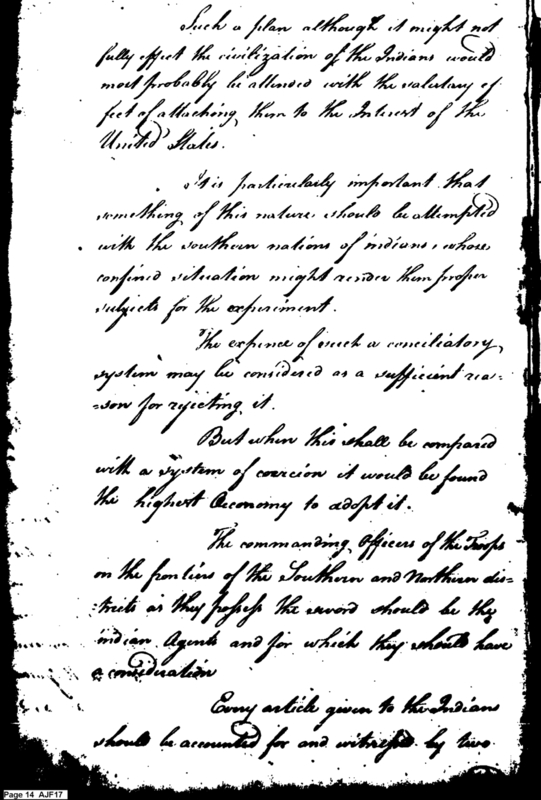 Such a plan although it might not
fully effect the civilization of the Indians would
most probably be attended with the salutary ef
fect of attaching them to the Interest of the
United States.
It is particularly important that
something of this nature should be attempted
with the southern nations of indians, whose
confined situation might render them proper
subjects for the experiment.
The expence of such a conciliatory
system may be considered as a sufficient rea-
-son for rejecting it.
But when this shall be compared
with a system of coercion it would be found
the highest Oeconomy to adopt it.
The commanding Officers of the Troops
on the frontiers of the Southern and Northern dis-
-tricts as they possess the sword should be the
indian Agents and for which they should have
a consideration
Every article given to the Indians
should be accounted for and witnessed by two
Page 14 AJF17